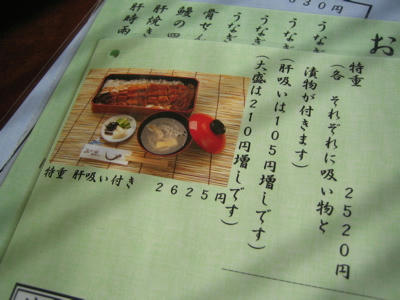 特重　２５２０円
(各　それぞれに吸い物と
漬物が付きます)
(肝吸いは１０５円増しです)
(大盛は２１０円増しです)
特重 肝吸い付き　２６２５円
お
うなぎ
うなぎ
うなぎ
骨せん
鰻の四
肝焼き
肝時雨
630円